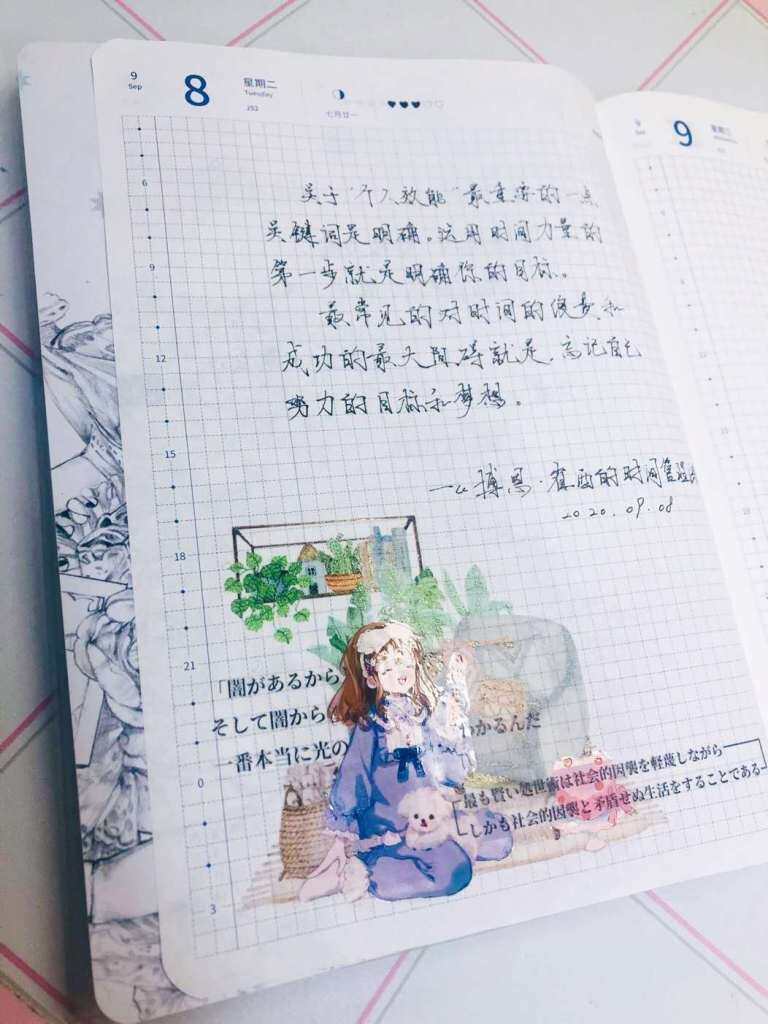 9
Sep
8
星期二
Tuesday
252
七月廿一
9
关于“个人效能”最重要的一点
关键词是明确。运用时间力量的
第一步就是明确你的目标。
最常见的对时间的浪费和
成功的最大阻碍就是,忘记自己
努力的目标和梦想。
——博恩·崔西的时间管理
2020.09.08
6
9
12
15
18
21
0
3
「闇があるから
そして闇から
かるんだ
一番本当に光の
最も賢い処世術は社会的因襲を軽蔑しながら
しかも社会的因襲と矛盾せぬ生活をすることである